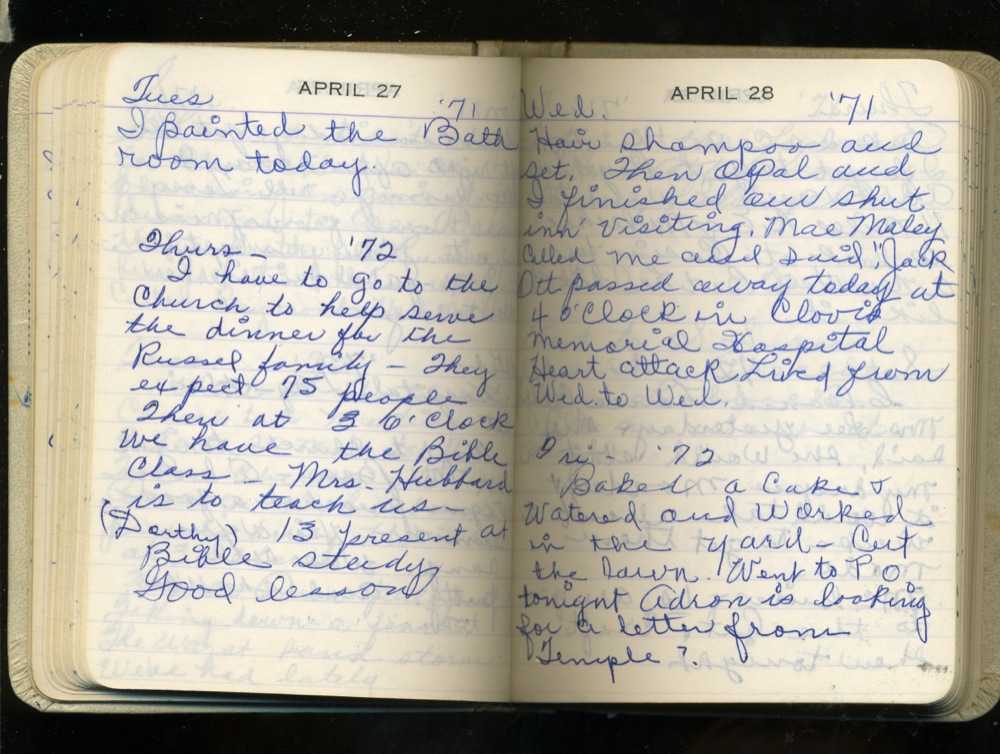 APRIL 27
Tues '71
I painted the Bath
room today.
Thurs - '72
I have to go to the
Church to help serve
the dinner for the
Russel family - They
expect 75 people
Then at 3 O'Clock
we have the Bible
Class - Mrs. Hubbard
is to teach us -
(Dorthy) 13 present at
Bible study
Good lesson
The worst sand storm
weve had lately
APRIL 28
Wed. '71
Hair shampoo and
set. Then Opal and
I finished our shut
inn visiting. Mae Maley
called me and said, "Jack
Ott passed away today at
4 o'Clock in Clovis
Memorial Hospital
Heart attack Lived from
Wed. to Wed.
Fri - '72
Baked a Cake &
Watered and Worked
in the yard - Cut
the Lawn. Went to P.O.
tonight Adron is looking
for a letter from
Temple ?.